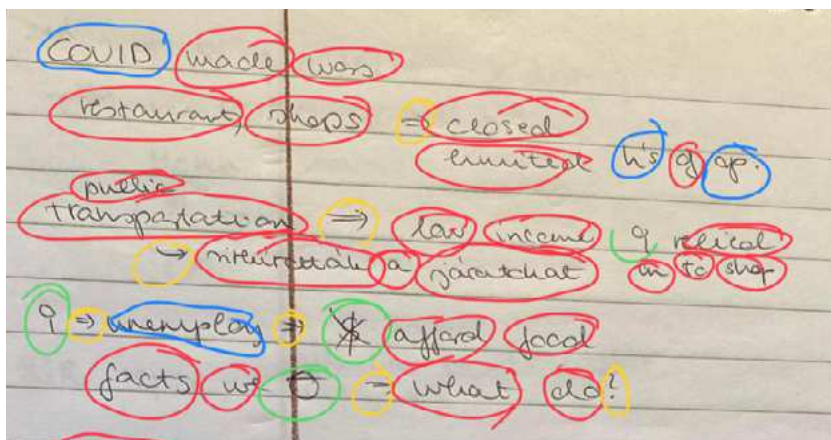 COVID made
restaurant, shops ⇒ closed
limited h's of op.
public
transportation ⇒ low income ♀ relied
→ ritkították a járatokat to shop
♀ ⇒ unemploy ⇒ $ afford food
facts we ⇒ what do?